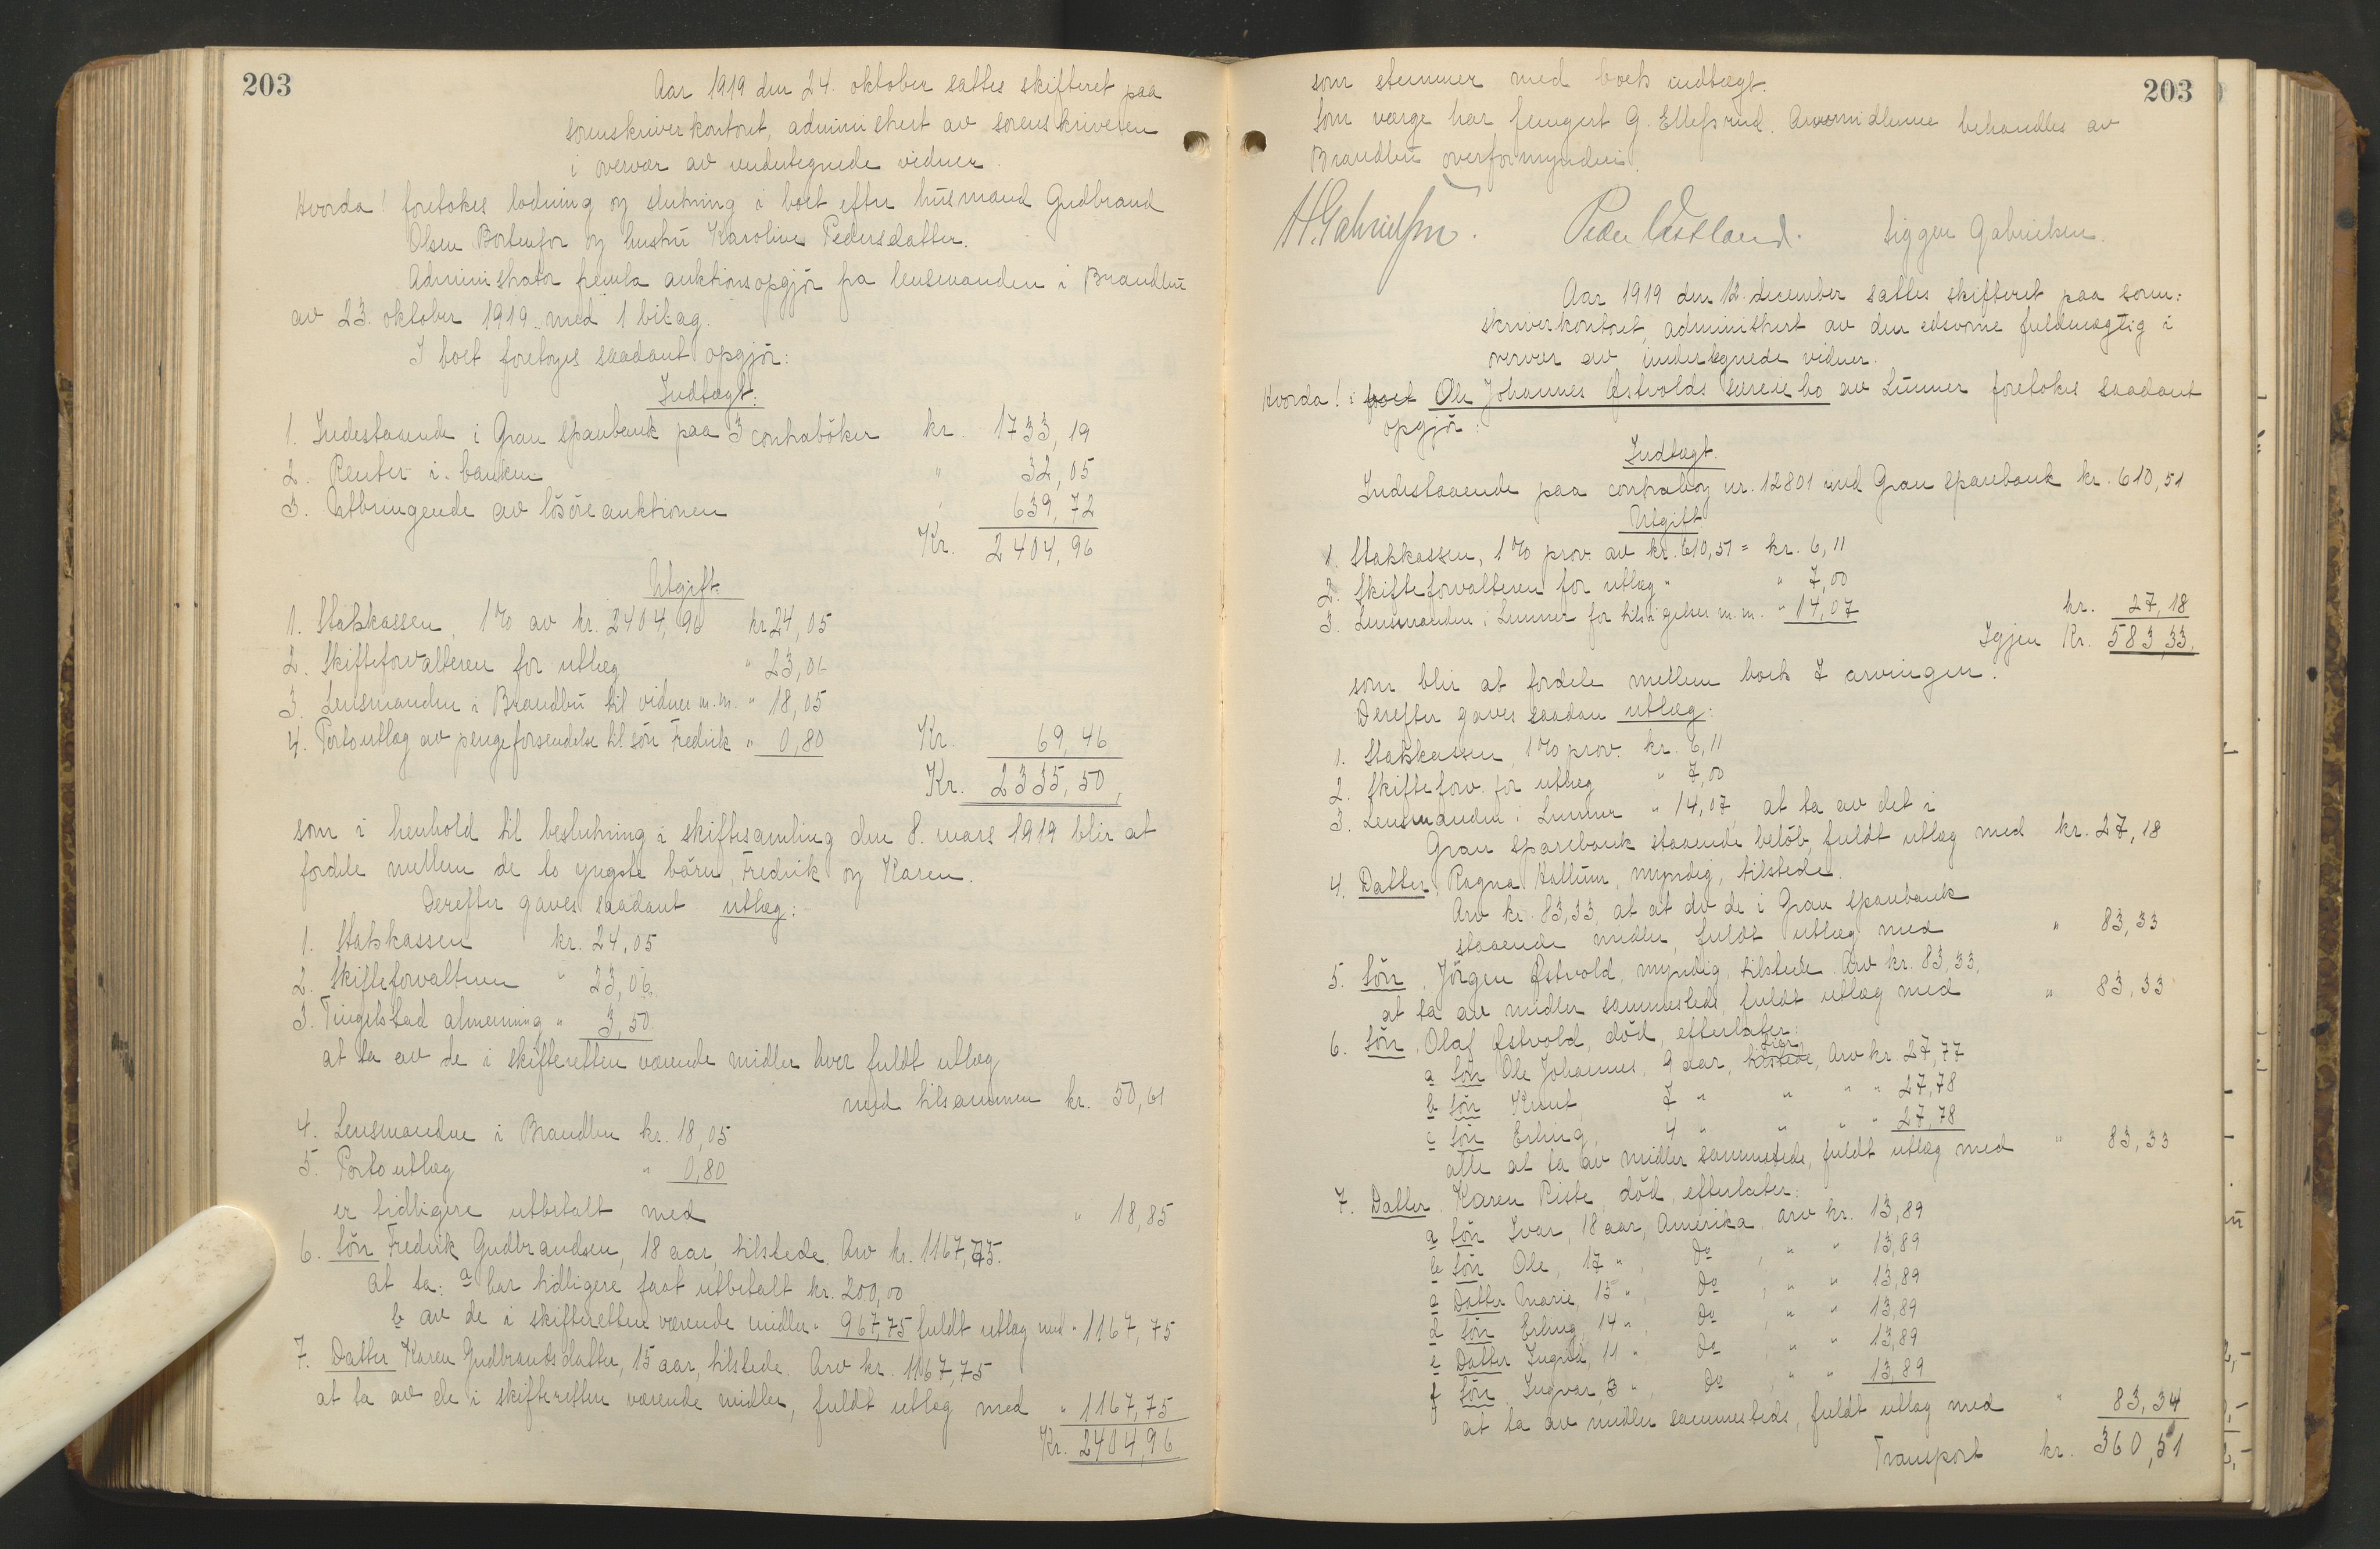 203
Aar 1919 den 24. oktober sattes skifteret paa
sorenskriverkontoret, administrert av sorenskriveren
i overvær av undertegnede vidner.
Hvorda! foretokes lodning og slutning i boet efter husmand Gudbrand
Olsen Bortenfor og hustru Karoline Pedersdatter.
Administrator fremla auktionsopgjør fra lensmanden i Brandbu
av 23. oktober 1919 med 1 bilag.
I boet foretoges saadant opgjør:
Indtægt:
1. Indestaaende i Gran Sparebank paa 3 contrabøker kr. 1733,19
2. Renter i banken " 32,05
3. Utbringende av løsøreauktionen " 639,72
Kr. 2404,96
Utgift:
1. Statskassen, 1% av kr. 2404,96 kr 24,05
2. Skifteforvalteren for utlæg " 23,06
3. Lensmanden i Brandbu til vidner m.m. " 18,05
4. Portoutlæg av pengeforsendelse til søn Fredrik " 0,80 Kr. 69,46
Kr. 2335,50,
som i henhold til beslutning i skiftesamling den 8. mars 1919 blir at
fordele mellem de to yngste børn, Fredrik og Karen.
Derefter gaves saadant utlæg:
1. Statskassen kr. 24,05
2. Skifteforvalteren " 23,06
3. Tingelstad almenning " 3,50
at ta av de i skifteretten værende midler hver fuldt utlæg
med tilsammen kr. 50,61
4. Lensmanden i Brandbu kr. 18,05
5. Portoutlæg " 0,80
er tidligere utbetalt med " 18,85
6. Søn Fredrik Gudbrandsen, 18 aar, tilstede. Arv kr. 1167,75.
at ta: a har tidligere faat utbetalt kr. 200,00
b av de i skifteretten værende midler " 967,75 fuldt utlæg med " 1167,75
7. Datter Karen Gudbrandsdatter, 15 aar, tilstede. Arv kr. 1167,75
at ta av de i skifteretten værende midler, fuldt utlæg med " 1167,75
Kr. 2404,96
203
som stemmer med boets indtægt.
Som værge har fungert G. Ellefsrud. Arvemidlerne behandles av
Brandbu overformynderi.
H. Gabrielsen. Peder Vestland. Sigger Gabrielsen.
Aar 1919 den 12. december sattes skifteret paa soren:
skriverkontoret, administrert av den edsvorne fuldmægtig i
overvær av undertegnede vidner.
Hvorda! i boet Ole Johannes Østvolds særeiebo av Lunner foretokes saadant
opgjør:
Indtægt.
Indestaaende paa contrabog nr. 12801 ved Gran Sparebank kr. 610,51
Utgift
1. Statskassen, 1% prov. av kr. 610,51 = kr. 6,11
2. Skifteforvalteren for utlæg " " 7,00
3. Lensmanden i Lunner for tilsigelser m.m. " 14,07 kr. 27,18
Igjen Kr. 583,33.
som blir at fordele mellem boets 7 arvinger.
Derefter gaves saadan utlæg:
1. Statskassen, 1% prov. kr. 6,11
2. Skifteforv. for utlæg " 7,00
3. Lensmanden i Lunner " 14,07 at ta av det i
Gran Sparebank staaende beløb, fuldt utlæg med kr. 27,18
4. Datter, Ragna Hallum, myndig, tilstede.
Arv kr. 83,33, at at av de i Gran Sparebank
staaende midler, fuldt utlæg med " 83,33
5. Søn, Jørgen Østvold, myndig, tilstede. Arv kr. 83,33,
at ta av midler sammesteds, fuldt utlæg med " 83,33
6. Søn, Olaf Østvold, død, efterlater:
a Søn Ole Johannes, 9 aar, tilstede, Arv kr. 27,77
b Søn Knut, 7 " " " " 27,78
c Søn Erling, 4 " " " " 27,78
alle at ta av midler sammesteds, fuldt utlæg med " 83,33
7. Datter Karen Riste, død, efterlater:
a Søn Ivar, 18 aar, Amerika, arv kr. 13,89
b Søn Ole, 17 ", do, " " 13,89
c Datter Marie, 15 ", do, " " 13,89
d Søn Erling, 14 ", do, " " 13,89
e Datter Ingrid, 11 " do, " " 13,89
f Søn Ingvar, 8 ", do, " " 13,89
at ta av midler sammesteds, fuldt utlæg med " 83,34
Transport kr. 360,51